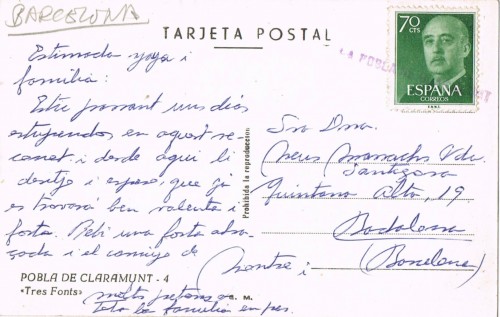 BARCELONA
TARJETA POSTAL
70
CTS
ESPAÑA
CORREOS
LA POBLA
NT
Estimada yaya i
familia:
Estic passant uns dias
estupendos en aquest re
canet i desde aqui li
desitjo i espero, que ja
es trovará ben valenta i
forta. Rebi una forta abra
çada i el carinyo de
Montse i
molts petons a
Tota la familia en pes.
Sra Dna.
Neus Vda.
Santigosa
Quintana Alta, 19
Badalona
(Barcelona)
Prohibida la reproducción
POBLA DE CLARAMUNT - 4
«Tres Fonts»
S. M.